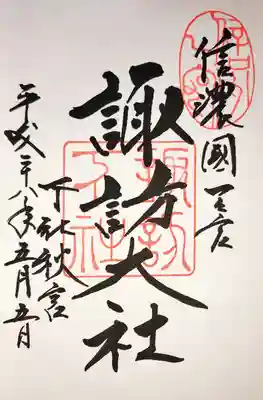 信濃國一之宮
諏訪大社
下社秋宮
平成二十八年五月五日